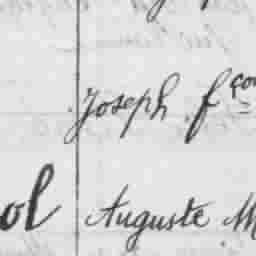 Joseph f^çon
ol Auguste M